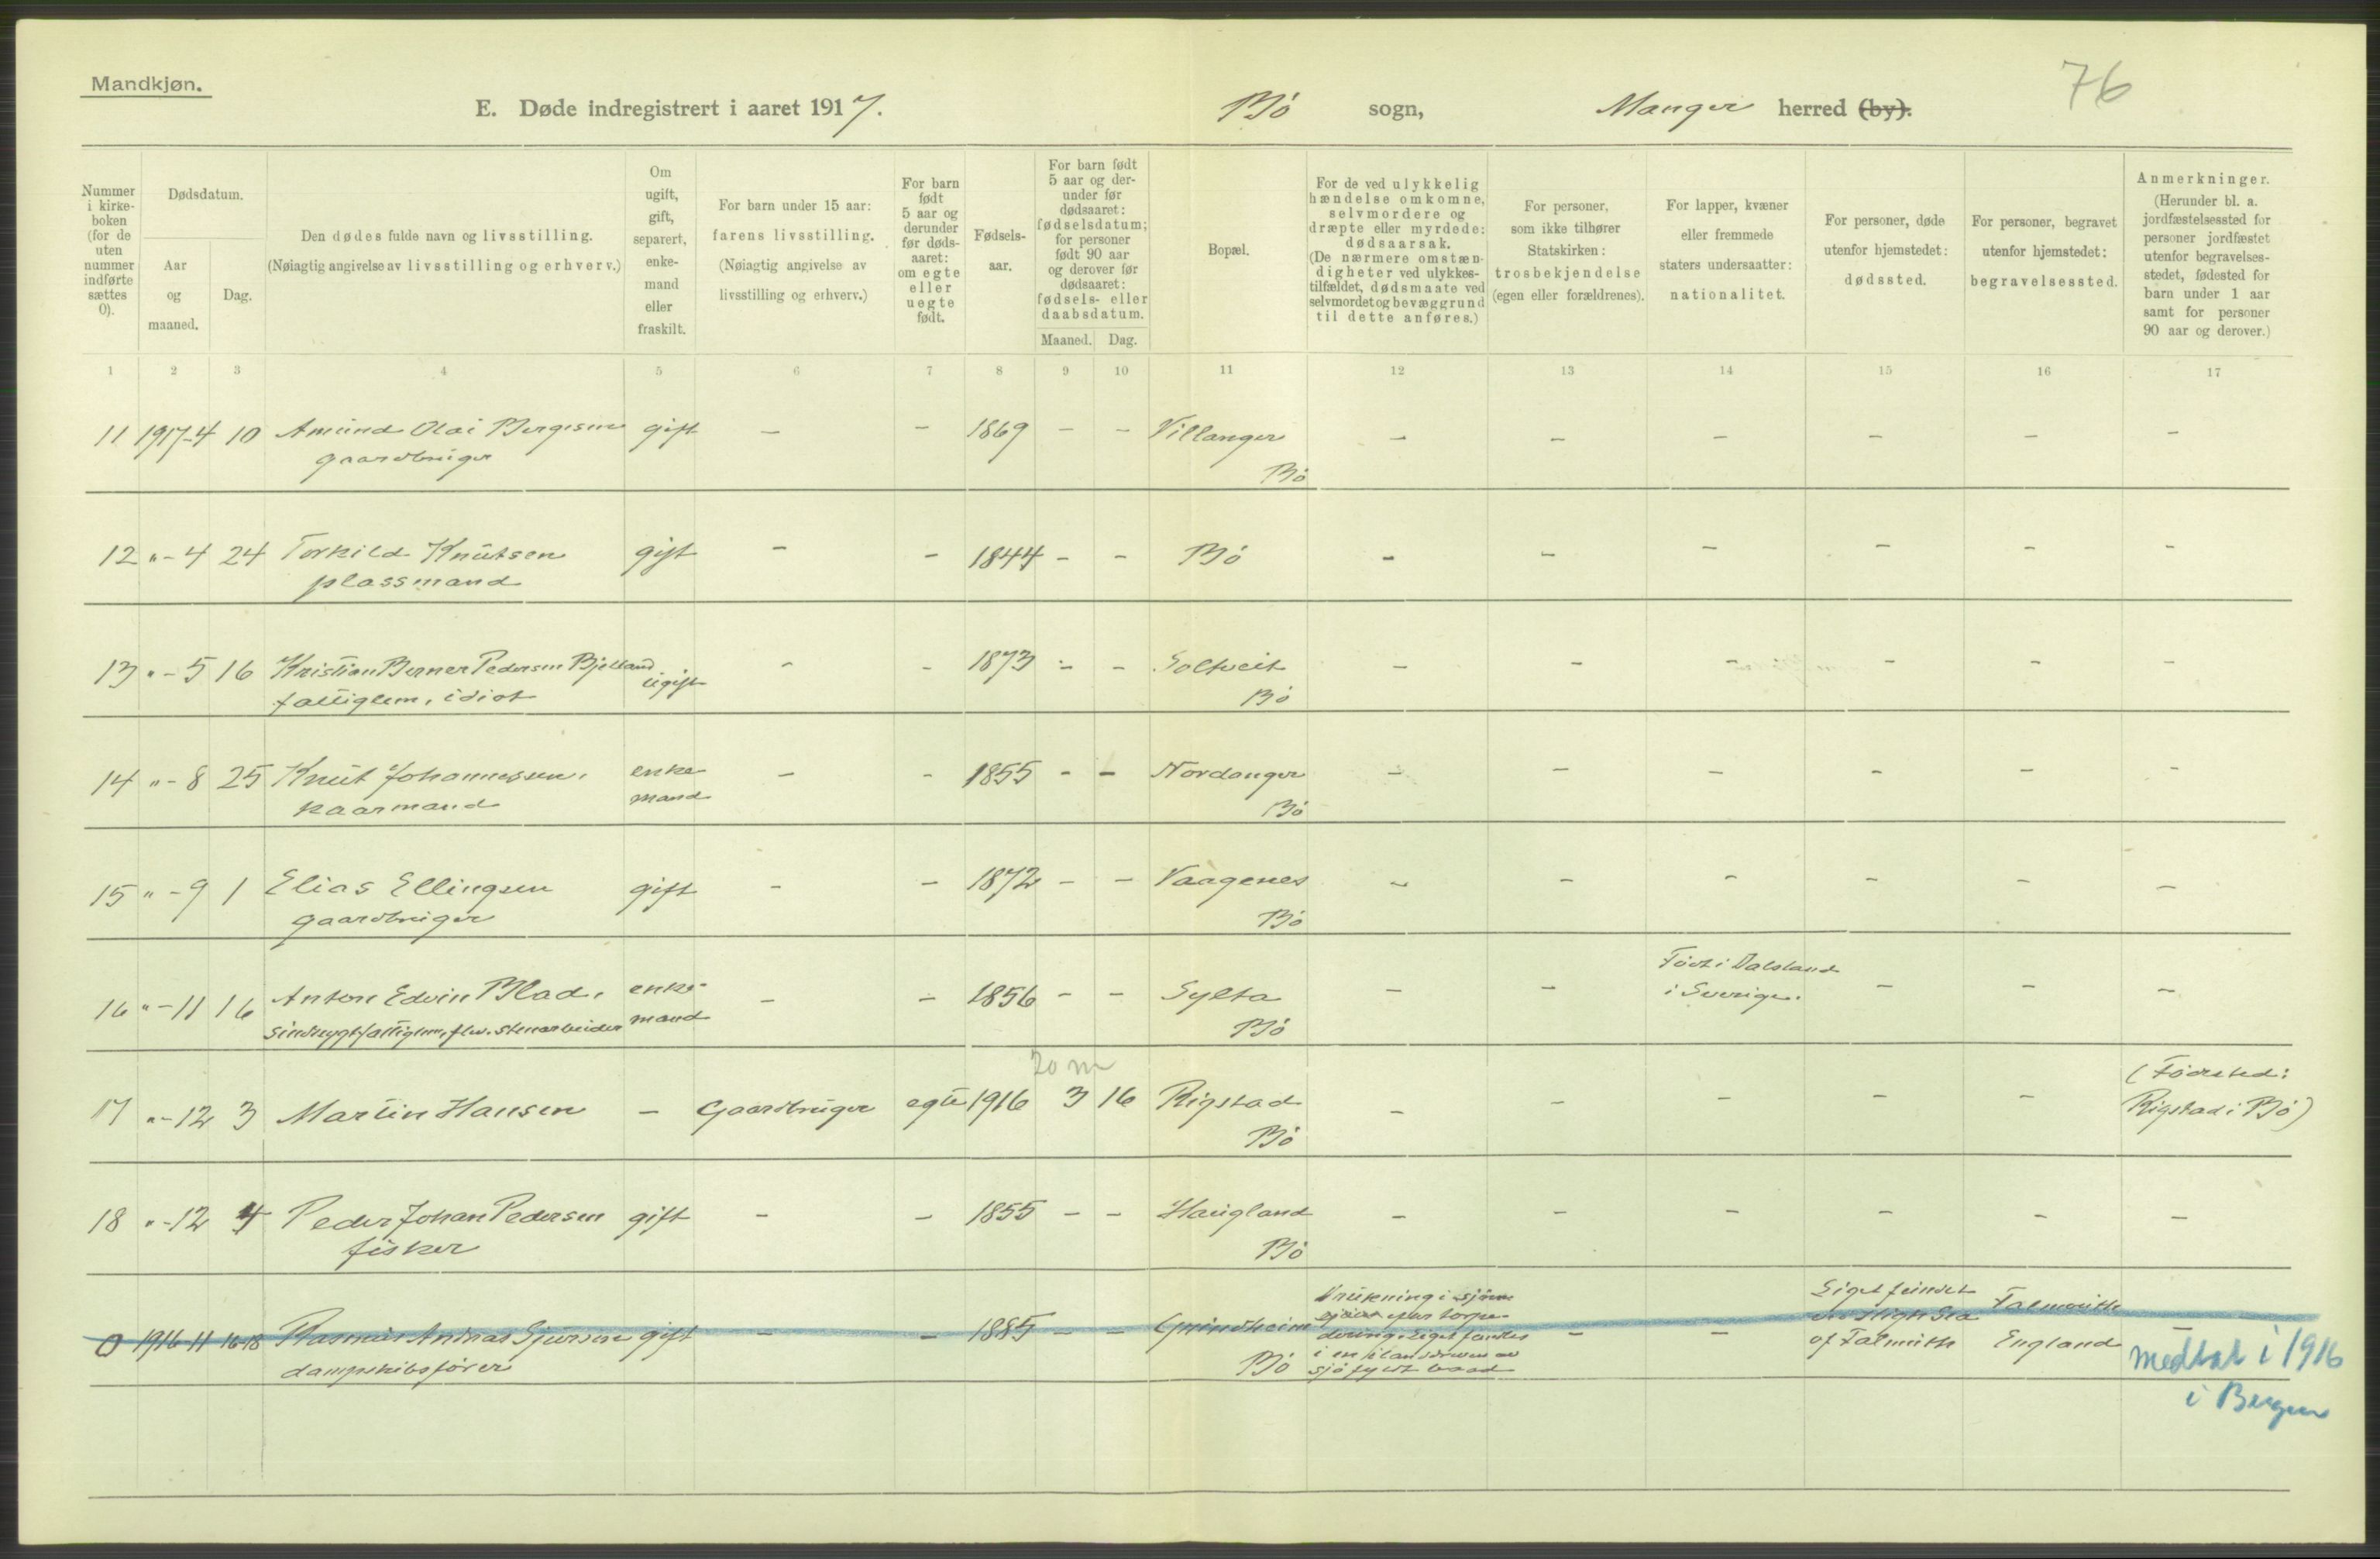 Mandkjøn.
76
E. Døde indregistrert i aaret 1917. Bö sogn, Manger herred (by).
Nummer i kirkeboken (for de uten nummer indførte sættes 0).
Dødsdatum.
Aar og maaned.
Dag.
Den dødes fulde navn og livsstilling.
(Nøiagtig angivelse av livsstilling og erhverv.)
Om ugift, gift, separert, enkemand eller fraskilt.
For barn under 15 aar: farens livsstilling. (Nøiagtig angivelse av livsstilling og erhverv.)
For barn født 5 aar og derunder før dødsaaret: om egte eller uegte født.
Fødselsaar.
For barn født 5 aar og derunder før dødsaaret: fødselsdatum; for personer født 90 aar og derover før dødsaaret: fødsels- eller daabsdatum.
Maaned. Dag.
Bopæl.
For de ved ulykkelig hændelse omkomne, selvmordere og dræpte eller myrdede: dødsaarsak. (De nærmere omstændigheter ved ulykkestilfældet, dødsmaate ved selvmordet og bevæggrund til dette anføres.)
For personer, som ikke tilhører Statskirken: trosbekjendelse (egen eller forældrenes).
For lapper, kvæner eller fremmede staters undersaatter: nationalitet.
For personer, døde utenfor hjemstedet: dødssted.
For personer, begravet utenfor hjemstedet: begravelsessted.
Anmerkninger. (Herunder bl. a. jordfæstelsessted for personer jordfæstet utenfor begravelsesstedet, fødested for barn under 1 aar samt for personer 90 aar og derover.)
1 2 3 4 5 6 7 8 9 10 11 12 13 14 15 16 17
11 1917-4 10 Amund Olai Bergesen gift - - 1869 - - Villanger - - - - - -
gaardbruger Bö
12 "-4 24 Torkild Knutsen gift - - 1844 - - Bö - - - - - -
plassmand
13 "-5 16 Kristian Berner Pedersen Bjelland ugift - - 1873 - - Soltveit - - - - - -
fattiglem, idiot Bö
14 "-8 25 Knut Johannessen. enke - - 1855 - - Nordanger - - - - - -
kaarmand mand Bö
15 "-9 1 Elias Ellingsen gift - - 1872 - - Vaagenes - - - - - -
gaardbruger Bö
16 "-11 16 Anton Edvin Blad. enke- - - 1856 - - Sylta - - Födt i Dalsland - - -
sindssygt fattiglem, fhv. stenarbeider mand Bö i Sverige.
20 m
17 "-12 3 Martin Hansen - Gaardbruger egte 1916 3 16 Rigstad - - - - - (Födested:
Bö Rigstad i Bö)
18 "-12 4 Peder Johan Pedersen gift - - 1855 - - Haugland - - - - - -
fisker Bö
0 1916-11 16-18 Rasmus Andreas Sjursen gift - - 1885 - - Grindheim
dampskibsfører Bö
Drukning i sjöen
efter torpe-
dering. Liget fandtes
i en ilanddreven av
sjö fyldt baad
- -
Liget fundet
on High Sea
of Falmuth
Falmouth
England
-
medtat i 1916
i Bergen